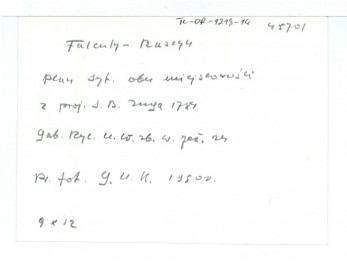 Tc-OR-1219-14
45701
Falenty - Raszyn
plan syt. obu miejscowości
z proj. S. B. Zuga 1784
Gab. Ryc. U. W. zb. w.
nr. fot. G. U. K. 1950 r.
9 x 12